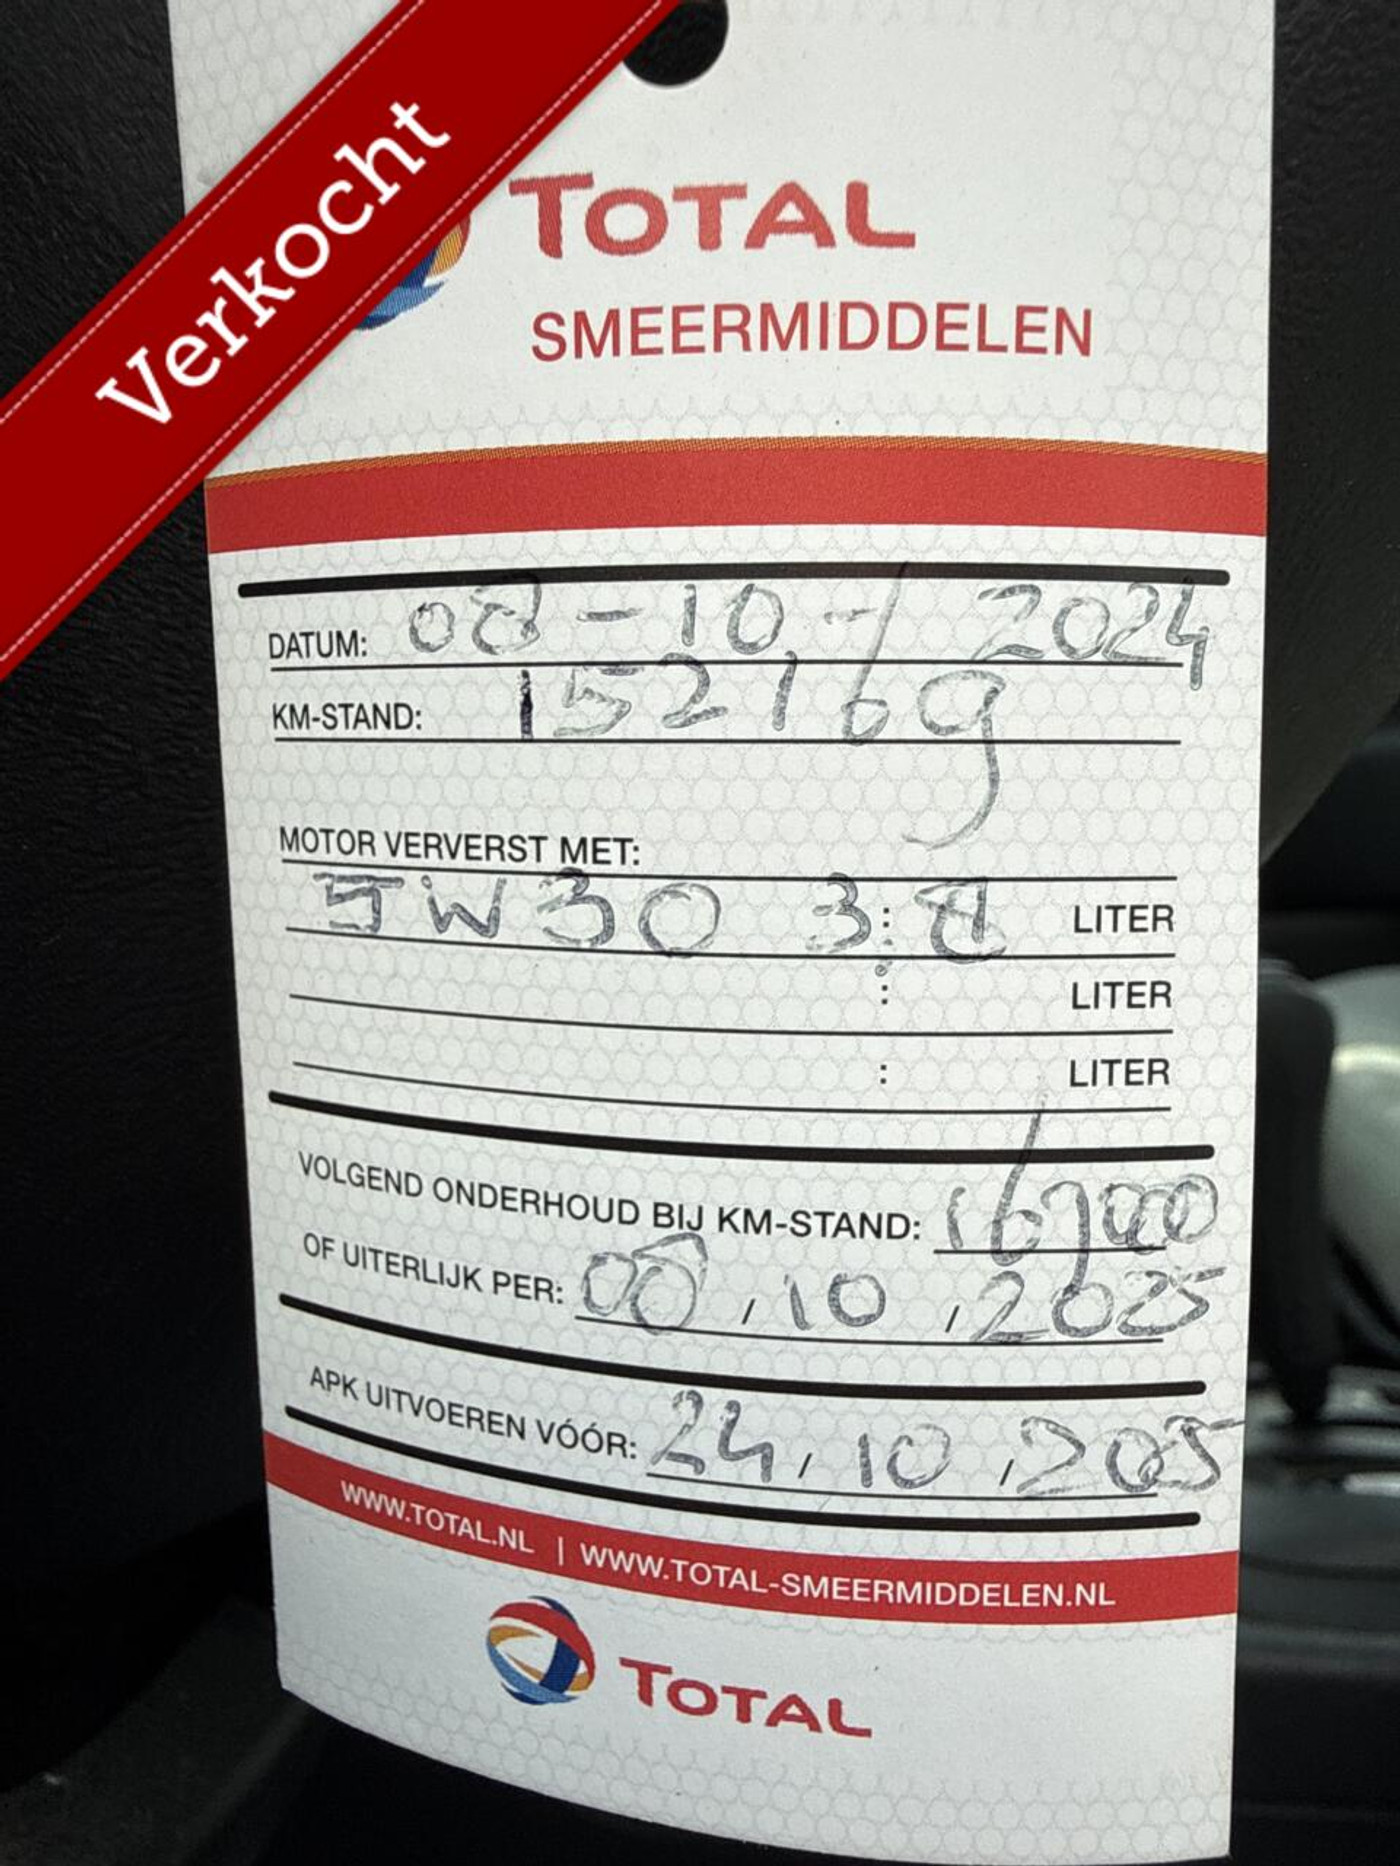 Verkocht
TOTAL
SMEERMIDDELEN
DATUM: 08-10-2024
KM-STAND: 152169
MOTOR VERVERST MET:
5W30 3:8 LITER
: LITER
: LITER
VOLGEND ONDERHOUD BIJ KM-STAND:
OF UITERLIJK PER: 08, 10, 2025
APK UITVOEREN VÓÓR: 24, 10, 2025
WWW.TOTAL.NL | WWW.TOTAL-SMEERMIDDELEN.NL
TOTAL